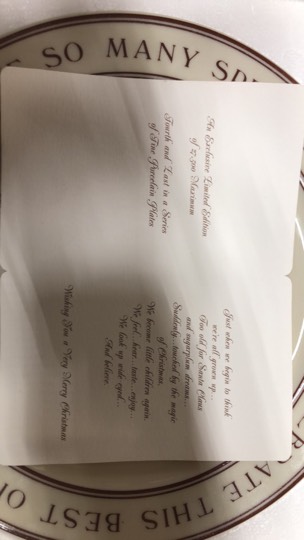 E SO MANY SP
An Exclusive Limited Edition
of 27,500 Maximum
Fourth and Last in a Series
of Fine Porcelain Plates
Just when we begin to think
we're all grown up...
Too old for Santa Claus
and sugarplum dreams...
Suddenly...touched by the magic
of Christmas,
We become little children again.
We feel...hear...taste...enjoy...
We look up wide eyed...
And believe.
Wishing You a Very Merry Christmas
RATE THIS BEST OF